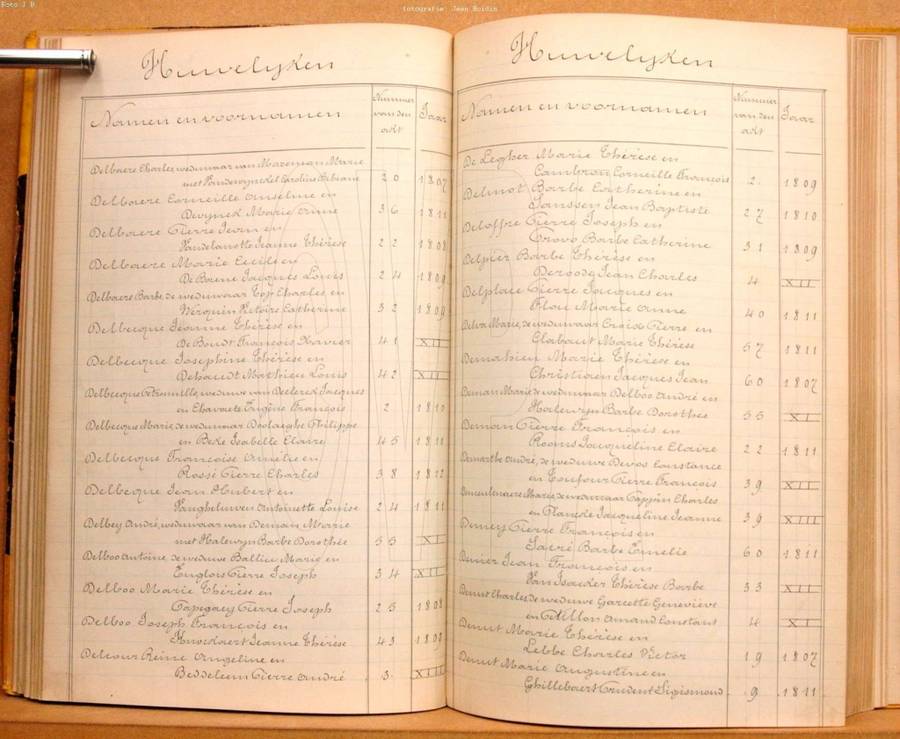 Foto J B
fotografie: Jean Boidin
Huwelyken
Namen en voornamen
Nummer van den adt
Jaar
Delbaere Charles weduwaar van Mazeman Marie
met Vandewynckel Caroline 20 1807
Delbaere Corneille Anselme en
Devynck Marie Anne 36 1811
Delbaere Pierre Jean en
Vandelanotte Jeanne Thérèse 22 1808
Delbaere Marie Lucie en
De Bonne Jacques Louis 24 1809
Delbaere Barbe de weduwaar Top Charles en
Werquin Victoire Catherine 32 1809
Delbecque Jeanne Thérèse en
De Boudt François Xavier 41 XII
Delbecque Josephine Thérèse en
Dehaudt Mathieu Louis 42 XII
Delbecque Petronille weduwe van Declerck Jacques
en Chavaete Eugène François 2 1810
Delbecque Marie de weduwaar Doolaeghe Philippe
en Beke Isabelle Claire 45 1811
Delbecque Françoise Amélie en
Rossé Pierre Charles 38 1812
Delbecque Jean Hubert en
Vanheluwe Antoinette Louise 24 1811
Delbey André, weduwaar van Deman Marie
met Halewyn Barbe Dorothée 55 XI
Delboo Antoine de weduwe Ballieu Marie en
Englois Pierre Joseph 34 XII
Delboo Marie Thérèse en
Capegacy Pierre Joseph 25 1808
Delboo Joseph François en
Knockaert Jeanne Thérèse 43 1809
Delcour Reine Angeline en
Beddeleem Pierre André 3 XIII
Huwelyken
Namen en voornamen
Nummer van den adt
Jaar
De Legher Marie Thérèse en
Cambron Corneille François 2 1809
Delmot Barbe Catherine en
Janssen Jean Baptiste 27 1810
Deloffre Pierre Joseph en
Trovo Barbe Catherine 31 1809
Delpier Barbe Thérèse en
Deroode Jean Charles 4 XII
Delplace Pierre Jacques en
Flou Marie Anne 40 1811
Delva Marie, de weduwaar Pierre en
Clabaut Marie Thérèse 57 1811
Demahieu Marie Thérèse en
Christiaen Jacques Jean 60 1807
Deman Marie de weduwaar Delboo André en
Halewyn Barbe Dorothée 55 XI
Deman Pierre François en
Rooms Jacqueline Claire 22 1811
Demarthe André, de weduwe Devos Constance
en Toufour Pierre François 39 XII
Demeulenaere Marie de weduwaar Cappon Charles
en Jacqueline Jeanne 39 XIII
Demey Pierre François en
Jacré Barbe Emelie 60 1811
Denier Jean François en
Van Isacker Thérèse Barbe 33 XII
Denut Charles de weduwe Garcette Geneviève
en Amand Constant 4 XI
Denut Marie Thérèse en
Lebbe Charles Victor 19 1807
Denut Marie Augustine en
Ghillebaert Prudent Sigismond 9 1811